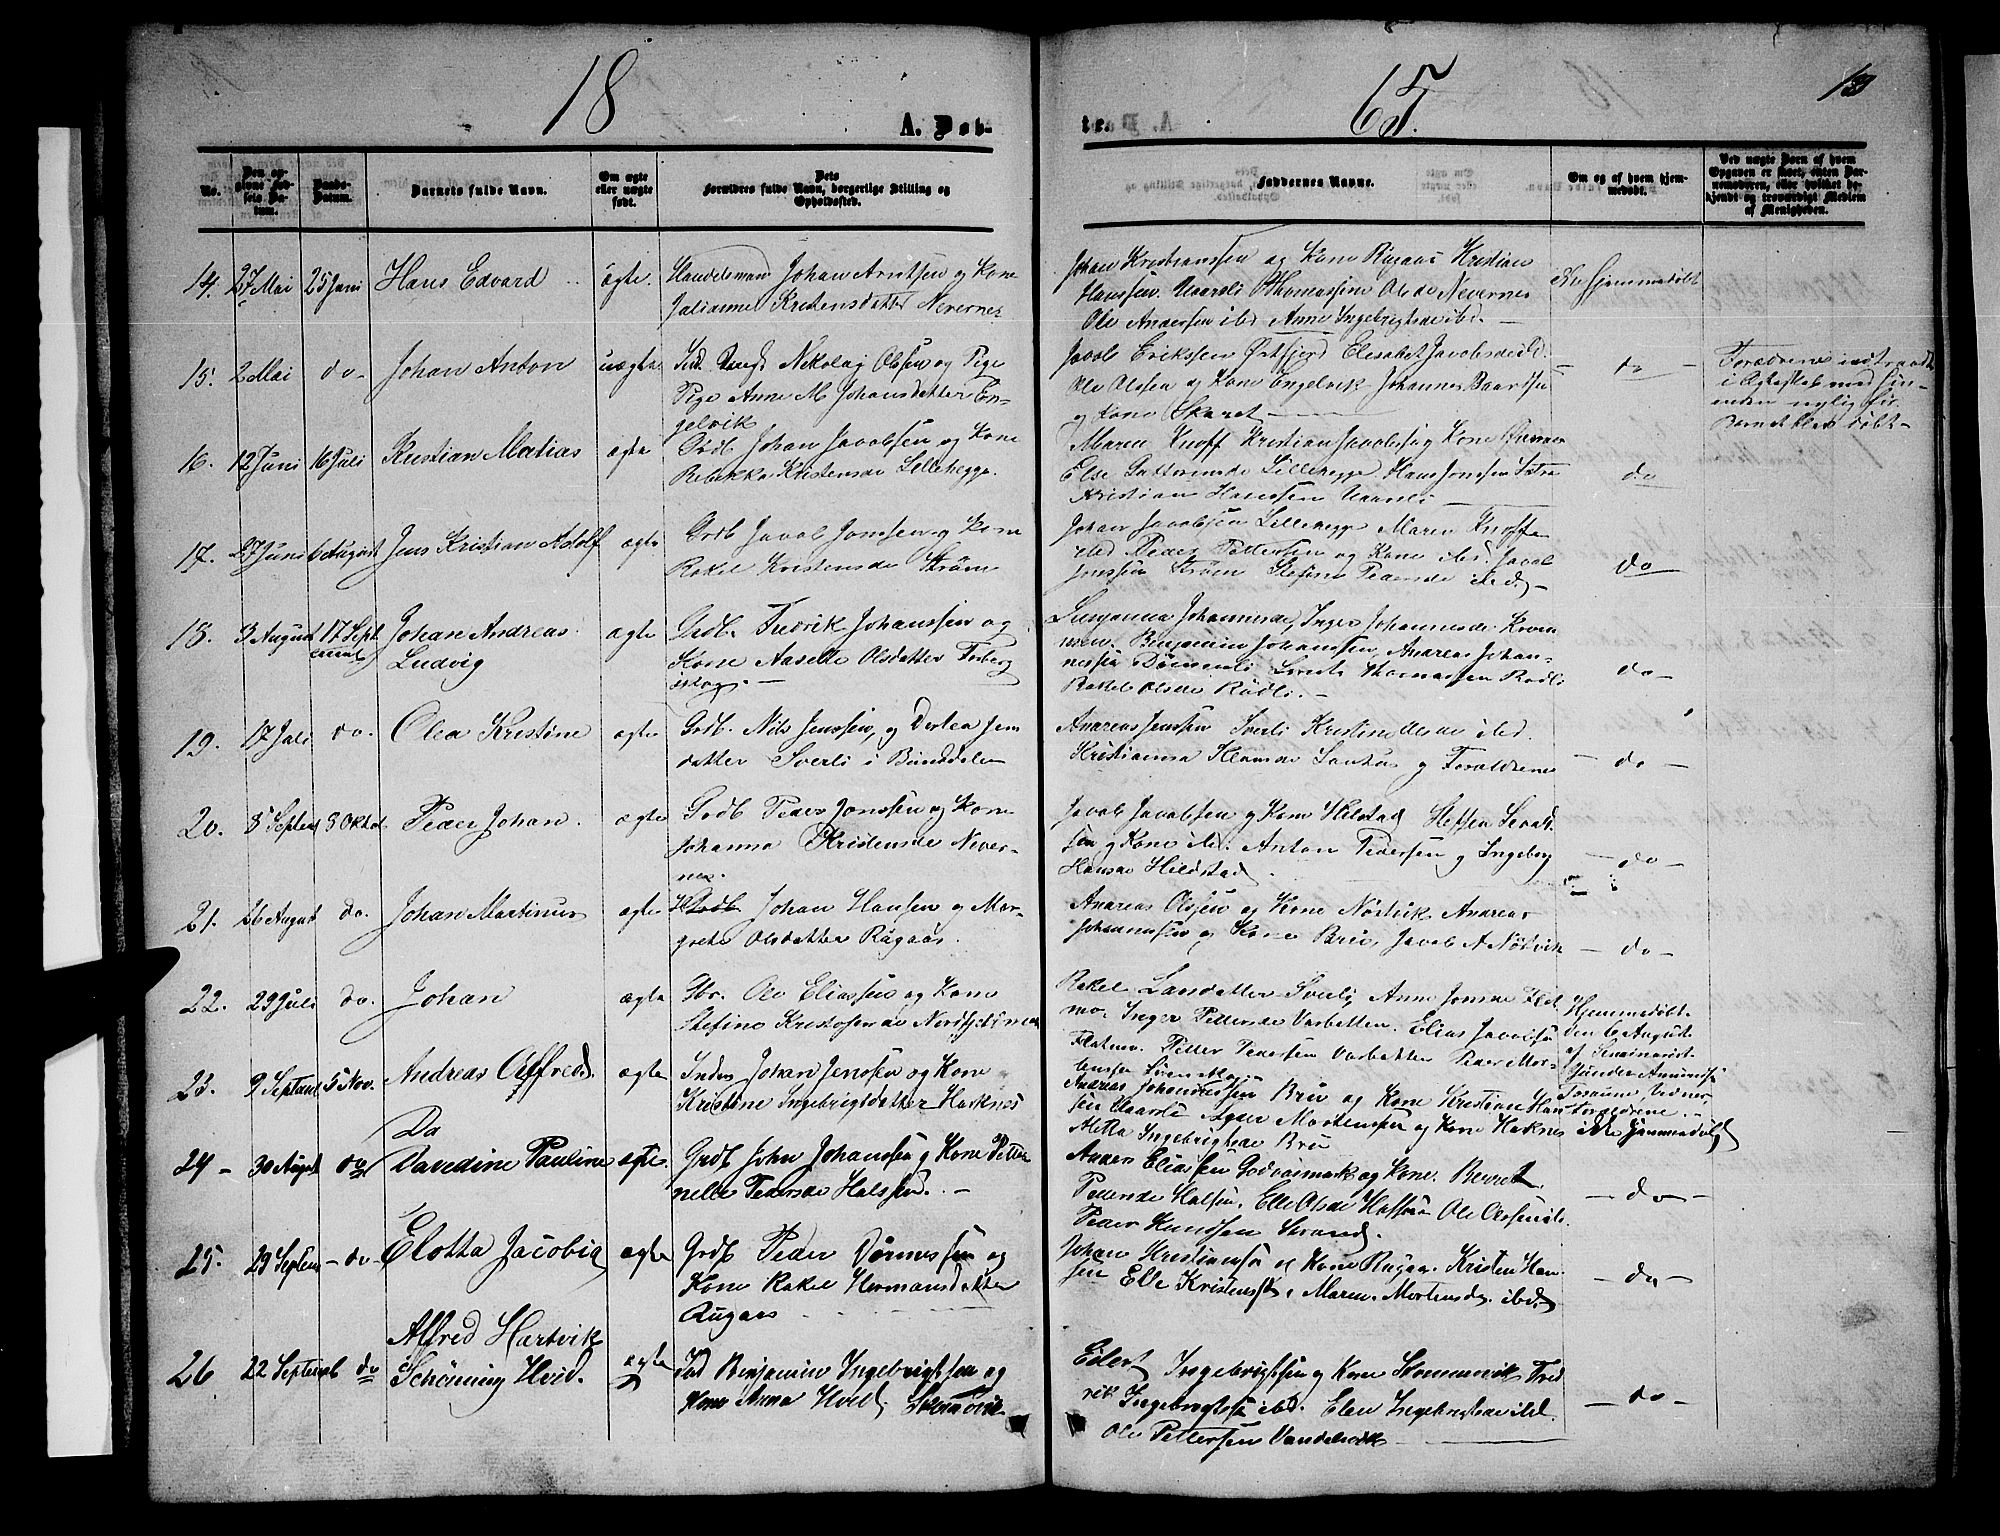 18 65.
A. Døb-
te.
No.
Den op-
givne Fød-
sels Da-
tum.
Daabs-
Datum.
Barnets fulde Navn.
Om ægte
eller uægte
født.
Dets
Forældres fulde Navn, borgerlige Stilling og
Opholdssted.
Faddernes Navne.
Om og af hvem hjem-
medøbt.
Ved uægte Børn af hvem
Opgaven er skeet, enten Bar-
nemoderen, eller hvilket be-
kjendt og troværdigt Medlem
af Menigheden.
14. 27 Mai 25 Juni Hans Edvard ægte. Handelsmand Johan Arntsen og Kone
Julianne Kristensdatter Nevernes
Johan Kristianssen og Kone Rugaas Kristian
Hanssen Aarsli Thomassine Olsde Nevernes
Ole Andersen ibd Anne Ingebrigtsde ibd.
Ei hjemmedøbt
15. 2 Mai do- Johan Anton uægte Nikolaj Olssen og Pige
Pige Anne M Johansdatter En-
gelvik
Jacob Erikssen Østfjord Elisabet Jacobsde ibd.
Ole Olssen og Kone Engelvik Johannes Baardsen
og Kone Skaret
do
Forældrene indtraadte
i Ægteskab med hin-
anden nylig før
Barnet blev døbt-
16. 12 Juni 16 Juli Kristian Matias ægte Grdb. Johan Jacobsen og Kone
Rebekka Kristensde Lillehegge.
Maren Knoff Kristian Jacobs og Kone
Else Guttormsde Lillehegge. Hans Jonssen
Kristian Hanssen Aarsli
do
17. 27 Juni 6 August Jens Kristian Adolf ægte Grdb Jacob Jonssen og Kone
Rakel Kristensde Strøm
Johan Jacobsen Lillehegge Maren Knoff
ibd Peder Pettersen og Kone ibd. Jacob
Jonssen Strøm Stefine Pedersde ibd
do
18. 3 August 17 Sept Johan Andreas
Ludvig
ægte Grdb. Fredrik Johanssen og
Kone Aaselle Olsdatter Forberg
Susanna Johannesde, Inger Johannesde
Benjamin Johanssen, Andreas Johan-
nessen Thomassen Rødli
Rakel Olsde Rødli.
do
19. 17 Juli do. Olea Kristine ægte Grdb. Nils Jenssen, og Dortea Jens
datter Sverli i Bunddalen
Andreas Jenssen Sverli Kristine Olsde ibd.
Kristianna Sandhus og Forældrene
- do -
20. 5 Septem 3 Oktob Peder Johan. ægte Grdb Peder Jonssen og Kone
Johanna Kristensde Never-
nes.
Jacob Jacobsen og Kone Hilstad Steffen
sen og Kone ibd. Anton Pedersen og Ingeborg
Hansde Hildstad
- do -
21. 26 August do. Johan Martinus ægte Johan Hansen og Mar-
grete Olsdatter Rugaas.
Andreas Olssen og Kone Nøstvik Andreas
Johannssen og Kone Bru, Jacob A Nøstvik
- do -
22. 29 Juli do. Johan ægte Gbr. Ole Eliassen og Kone
Stefine Kristofersde Nordfjeldmoen
Rakel Larsdatter Sverli, Anne Jonsde Flet
mo. Inger Pettersde Varbetten. Elias Jacobsen
Flatmo. Petter Pedersen Varbetten Peder Mor-
tensen
Hjemmedøbt
den 6 August
af Seminarist
Gunder Amundsen
Forældrene.-
23. 9 Septemb 5 Nov. Andreas Alfred. ægte Inder Johan Jenssen og Kone
Kristine Ingebrigtsdatter Haknes
Andreas Johannessen Bru og Kone Kristian Han
sen Aarsli Mortensen og Kone Haknes
Aletta Ingebrigtsde Bru
ikke hjemmedøbt
24 - 30 Augst do Da
Davedine Pauline ægte. Grdb John Johanssen og Kone Petter
nelle Pedersde Halssen. -
Anders Eliassen Godvasmark og Kone. Berret
Pedersde Halsen. Elle Olsde Ole Olssen ib.
Peder Knudssen Strand.
- do -
25. 23 Septem - do Elotta Jacobia ægte Grdb Peder og
Kone Rakel Hermansdatter
Rugaas
Johan Kristianssen og Kone Rugaas. Kristen Han-
sen Elle Kristenssd, Maren Mortensdr ibd.
- do -
26 22 Septemb do Alfred Hartvik
Schøning Hvid. ægte Ind Benjamin Ingebrigtsen og
Kone Anna Hvid
Eilert Ingebrigtsen og Kone Fred
rik Ingebrigtsen ibd. Elen Ingebrigtsde ibd.
Ole Pettersen Vandelvik
- do -